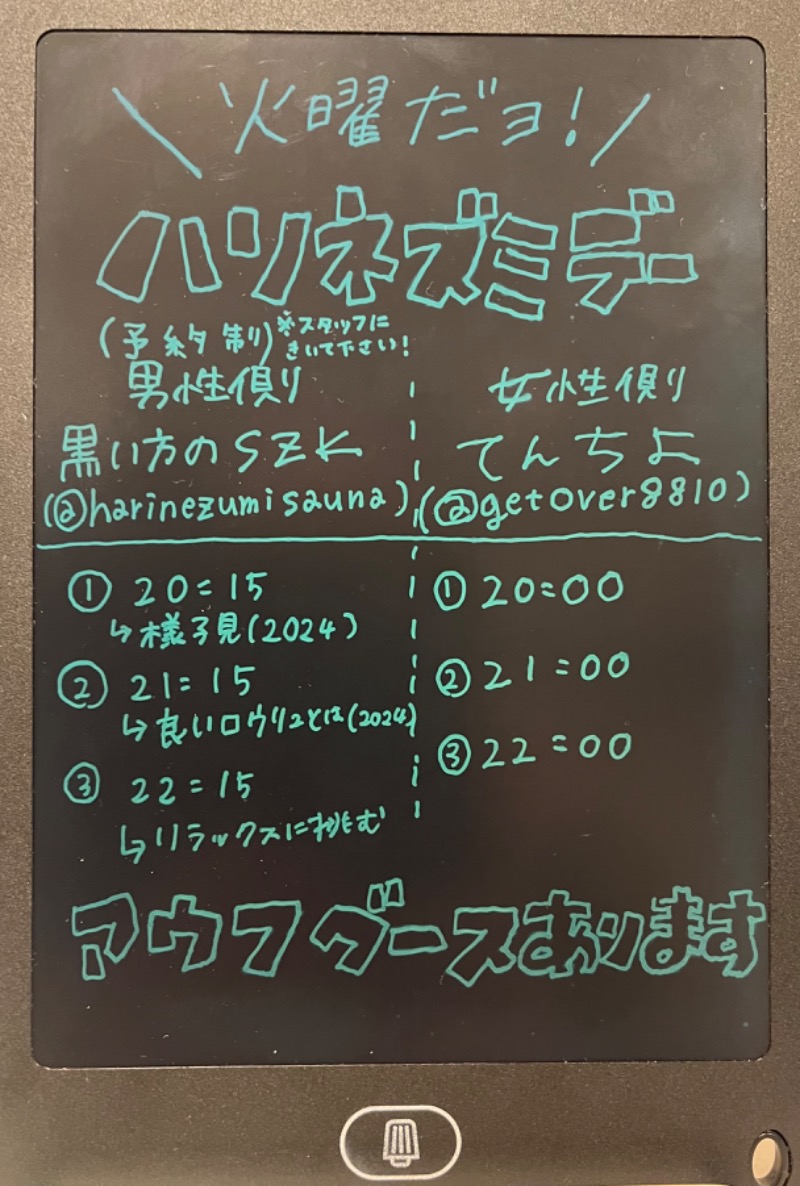 ＼火曜だヨ！／
ハリネズミデー
(予約制) ※スタッフに
きいて下さい！
男性側り
黒い方のSZK
(@harinezumisauna)
① 20:15
↳様子見(2024)
② 21:15
↳良いロウリュとは(2024)
③ 22:15
↳リラックスに挑む
女性側り
てんちよ
(@getover8810)
① 20:00
② 21:00
③ 22:00
アウフグースあります